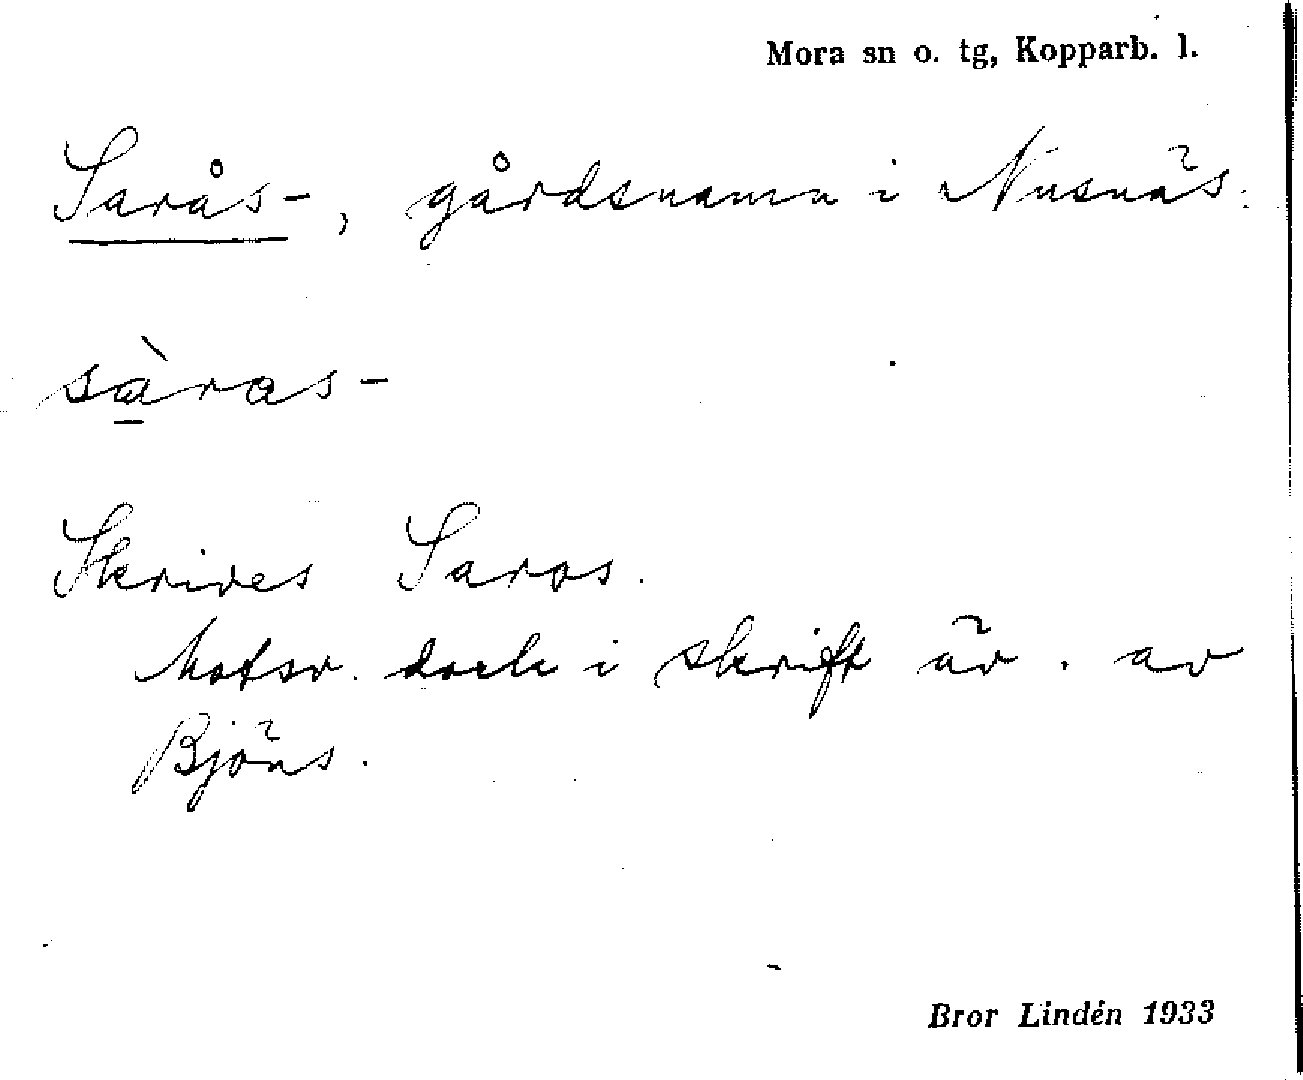 Mora sn o. tg, Kopparb. l.
Sarås-, gårdsnamn i Nusnäs.
sàras-
Skrives Saros.
Motsv. dock i skrift är. av
Björs.
Bror Lindén 1933